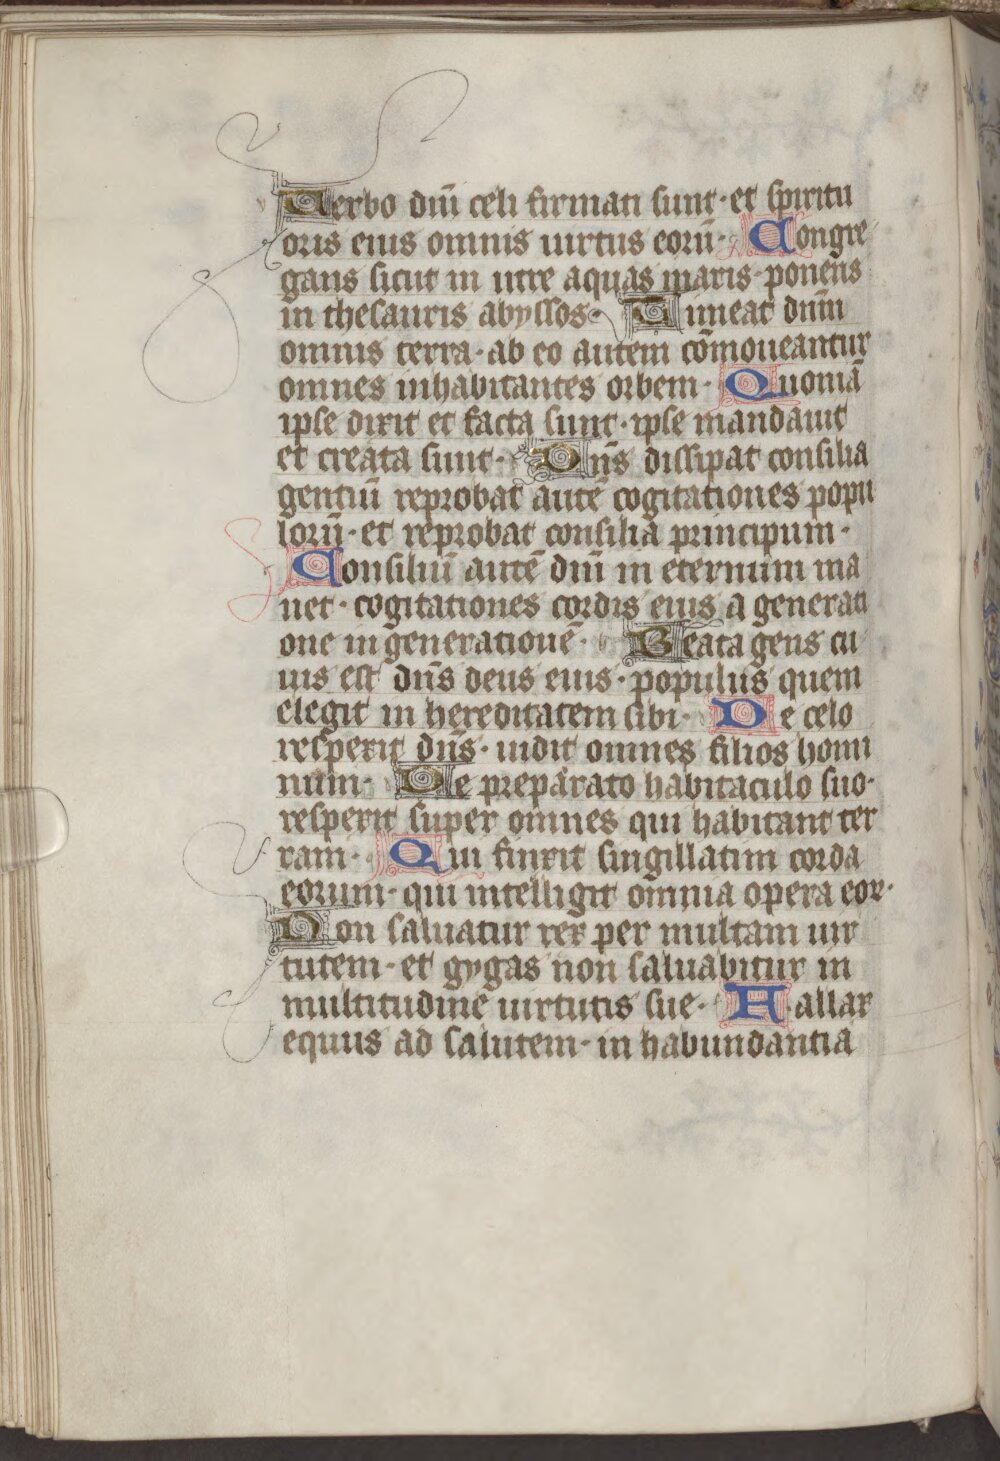 Uerbo dnī celi firmati sunt · et spiritu
oris eius omnis uirtus eorū · Congre
gans sicut in utre aquas maris · ponens
in thesauris abyssos · Timeat dnm̄
omnis terra · ab eo autem cōmoueantur
omnes inhabitantes orbem · Quoniā
ipse dixit et facta sunt · ipse mandauit
et creata sunt · Dn̄s dissipat consilia
gentiū reprobat autē cogitationes popu
lorū · et reprobat consilia principum ·
Consiliū autē dnī in eternum ma
net · cogitationes cordis eius a generati
one in generationē · Beata gens cu
ius est dn̄s deus eius · populus quem
elegit in hereditatem sibi · De celo
respexit dn̄s · uidit omnes filios homi
num · De preparato habitaculo suo ·
respexit super omnes qui habitant ter
ram · Qui finxit singillatim corda
eorum · qui intelligit omnia opera eor ·
Non saluatur rex per multam uir
tutem · et gygas non saluabitur in
multitudine uirtutis sue · Fallax
equus ad salutem · in habundantia